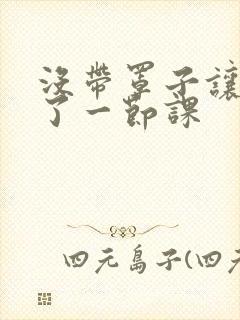 没帶罩子讓
了一節課
四元島子(四元